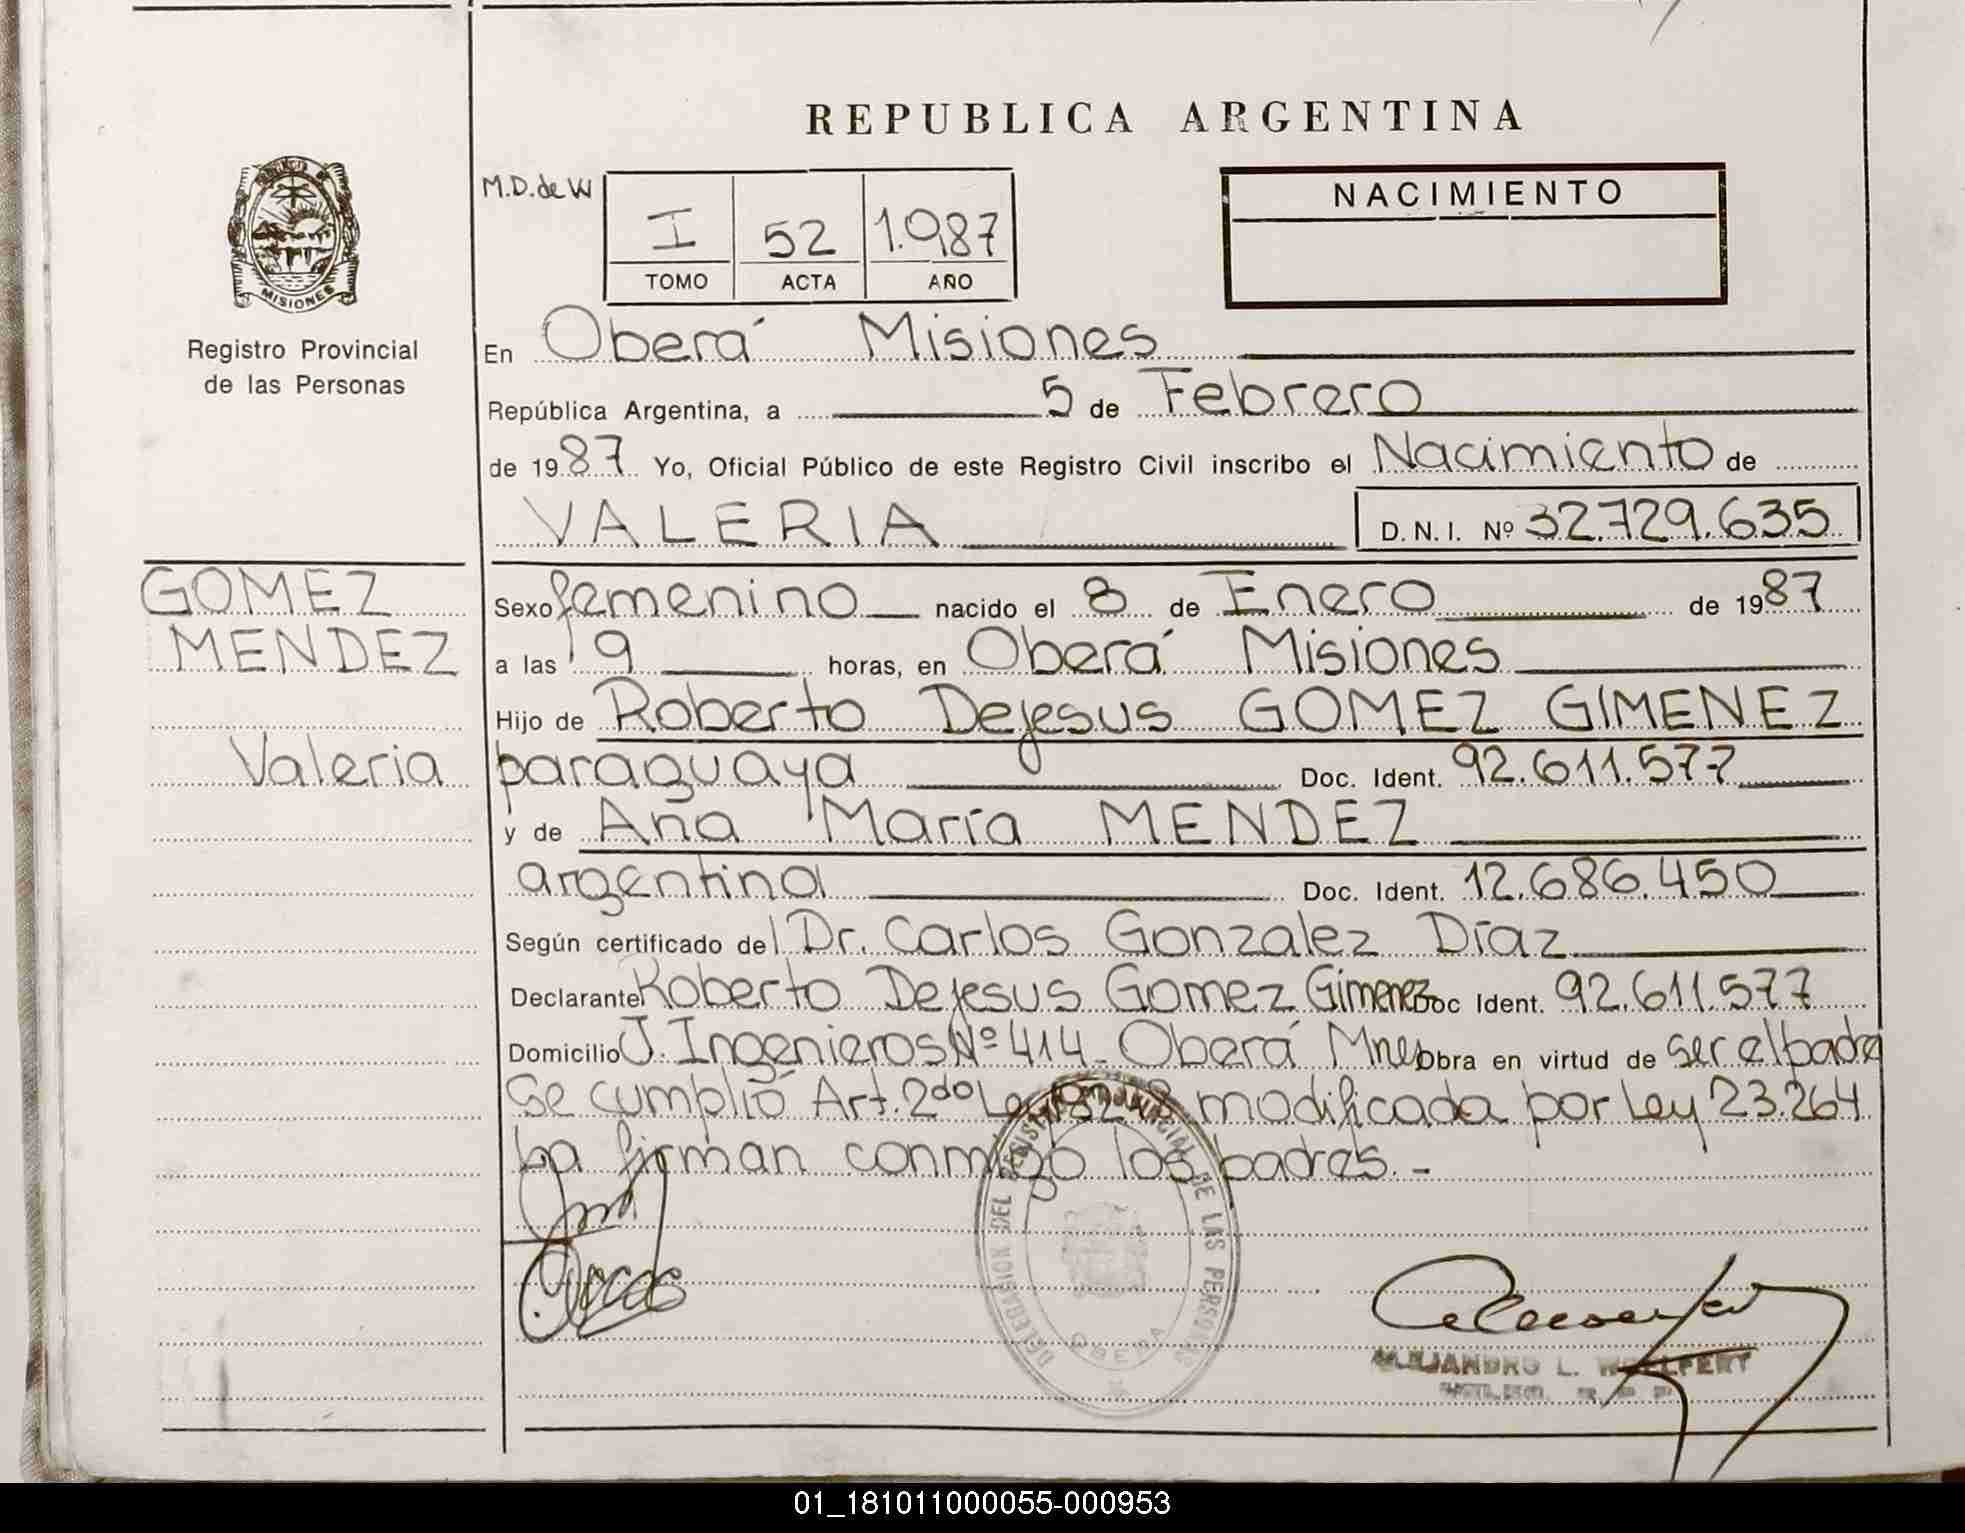 REPUBLICA ARGENTINA
M.D. de W
I 52 1.987
TOMO ACTA AÑO
NACIMIENTO
MISIONES
Registro Provincial
de las Personas
En Oberá Misiones
República Argentina, a 5 de Febrero
de 1987 Yo, Oficial Público de este Registro Civil inscribo el Nacimiento de
VALERIA D.N.I. Nº 32.729.635
GOMEZ
MENDEZ
Valeria
Sexo femenino nacido el 8 de Enero de 1987
a las 9 horas, en Oberá Misiones
Hijo de Roberto Dejesus GOMEZ GIMENEZ
paraguaya Doc. Ident. 92.611.577
y de Ana María MENDEZ
argentina Doc. Ident. 12.686.450
Según certificado del Dr. Carlos Gonzalez Díaz
Declarante Roberto Dejesus Gomez Gimenez Doc Ident. 92.611.577
Domicilio J. Ingenieros Nº 414 - Oberá Mnes Obra en virtud de ser el padre
Se cumplió Art. 2do Ley modificada por Ley 23.264
La firman conmigo los padres. -
DELEGACION DEL REGISTRO PROVINCIAL DE LAS PERSONAS
OBERA
ALEJANDRO L. WOELFERT
01_181011000055-000953